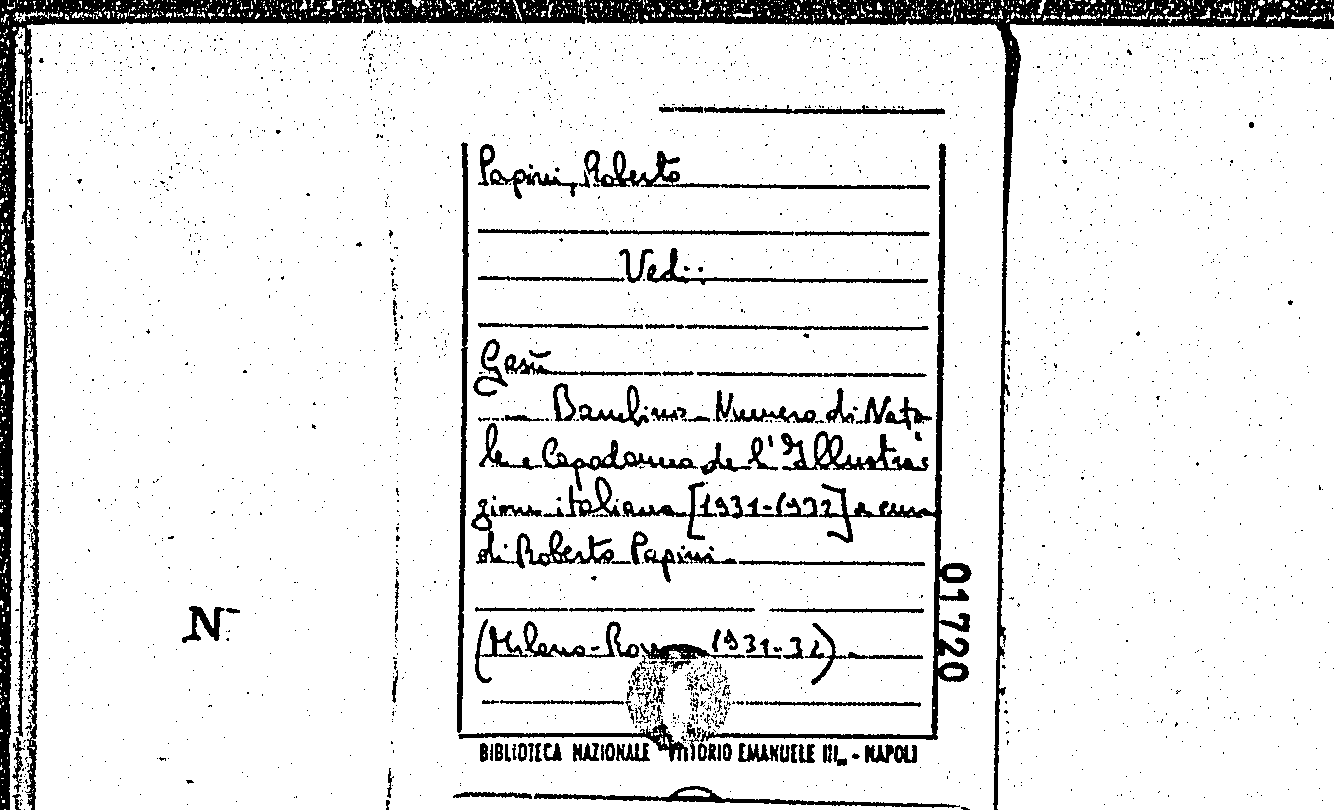 Papini, Roberto
Vedi:
Gesù
Bambino - Numero di Nata
le e Capodanno de l'Illustra
zione italiana [1931-1932] a cura
di Roberto Papini.
(Milano-Roma 1931-32).
N
01720
BIBLIOTECA NAZIONALE VITTORIO EMANUELE III - NAPOLI